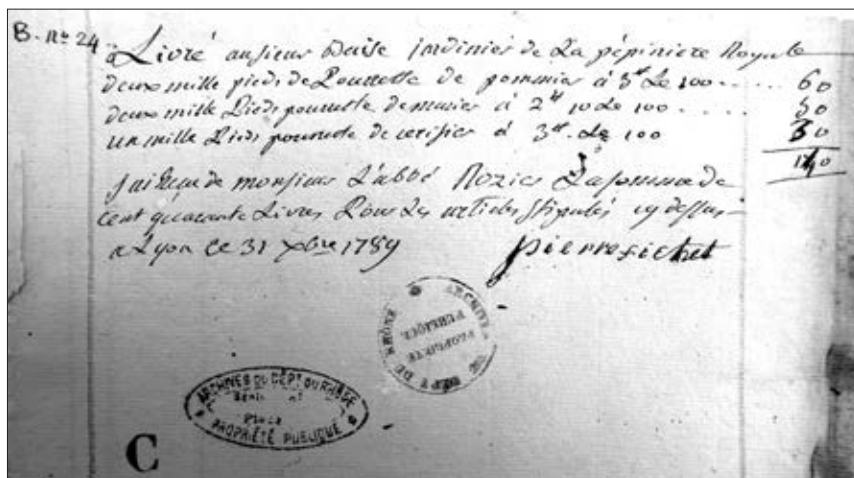 B. n° 24
Livré au sieur jardinier de La pépiniere Royale
deux mille pieds de Pourrette de pommier à 3# Le 100 ..... 60
deux mille Pieds pourrette de murier à 2# 10 Le 100 ..... 50
un mille Pieds pourrette de cerisier à 3#. Le 100 30
140
J'ai Reçu de monsieur L'abbé Rozier La somme de
cent quarante Livres Pour Les articles stipulés cy dessus
a Lyon ce 31 xbre 1789 pierre fichet
ARCHIVES DU DÉPT DU RHÔNE
PROPRIÉTÉ PUBLIQUE
ARCHIVES DU DÉPT DU RHÔNE
PROPRIÉTÉ PUBLIQUE
C